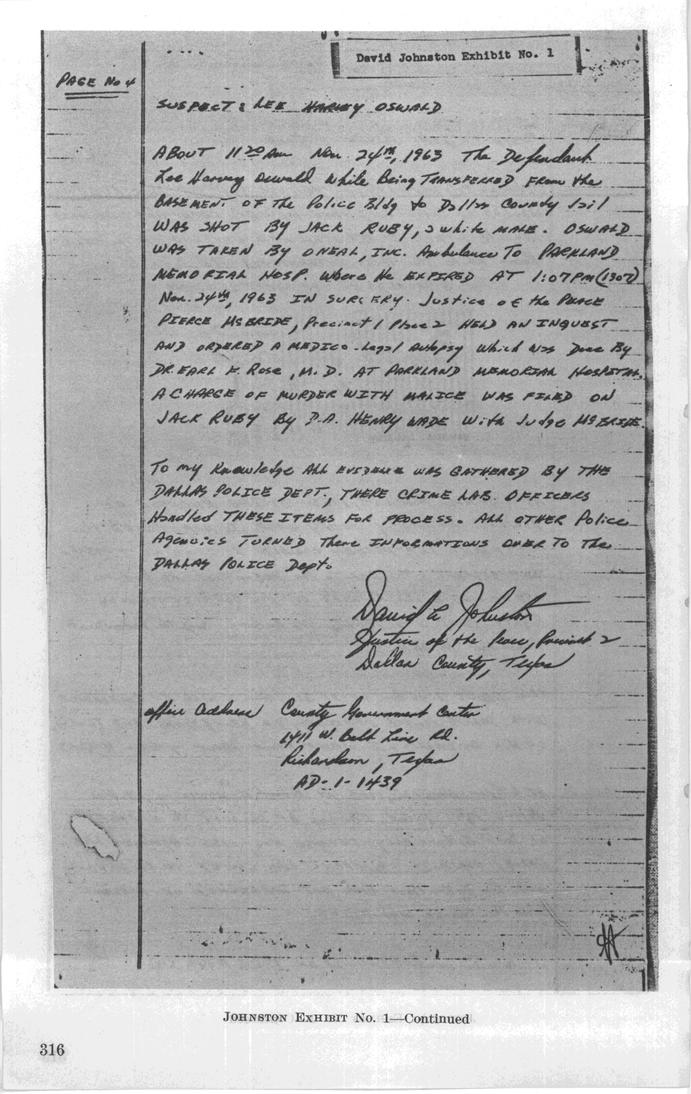 David Johnston Exhibit No. 1
PAGE No 4
SUSPECT: LEE HARVEY OSWALD
ABOUT 11 20 AM Nov. 24th, 1963 The Defendant
Lee Harvey Oswald While Being TRANSFERRED From the
BASEMENT OF The Police Bldg to Dallas County Jail
WAS SHOT BY JACK RUBY, a white MALE. OSWALD
WAS TAKEN BY ONEAL, INC. Ambulance To PARKLAND
MEMORIAL HOSP. Where He EXPIRED AT 1:07PM (1307)
Nov. 24th, 1963 IN SURGERY. Justice of the PEACE
PIERCE McBRIDE, Precinct 1 Place 2 HELD AN INQUEST
AND ORDERED A MEDICO-Legal Autopsy Which was Done By
DR. EARL F. Rose, M.D. AT PARKLAND MEMORIAL HOSPITAL.
A CHARGE OF MURDER WITH MALICE WAS FILED ON
JACK RUBY By D.A. HENRY WADE With Judge McBRIDE.
TO my Knowledge ALL EVIDENCE WAS GATHERED BY THE
DALLAS POLICE DEPT., THERE CRIME LAB. OFFICERS
Handled THESE ITEMS FOR PROCESS. ALL OTHER Police
Agencies TURNED There INFORMATIONS OVER TO The
DALLAS POLICE Dept.
David L Johnston
Justice of the Peace, Precinct 2
Dallas County, Texas
office address County Government Center
1411 W. Belt Line Rd.
Richardson, Texas
AD-1-1439
JOHNSTON EXHIBIT No. 1—Continued
316